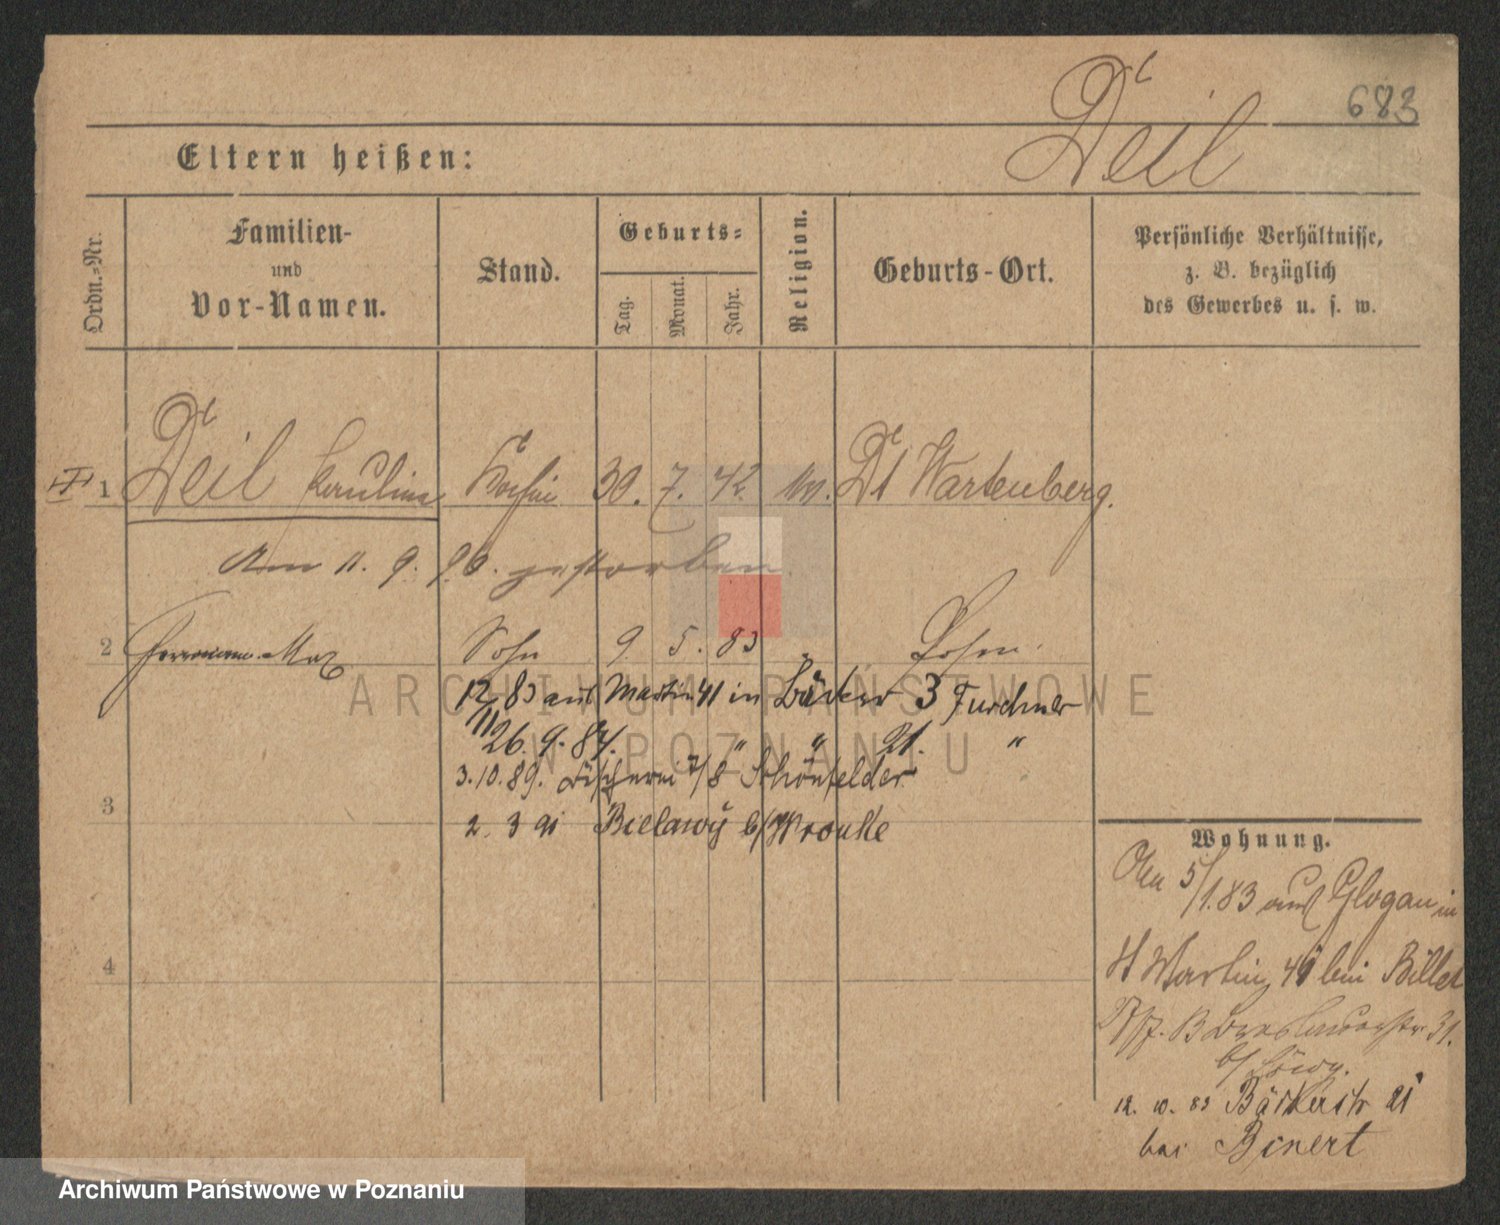 683
Deil
Eltern heißen:
Ordn.-Nr.
Familien-
und
Vor-Namen.
Stand.
Geburts-
Tag.
Monat.
Jahr.
Religion.
Geburts-Ort.
Persönliche Verhältnisse,
z. B. bezüglich
des Gewerbes u. s. w.
1 Deil Paulina Köchin 30. 7. 42 Dt Wartenberg.
Am 11. 9. 90. gestorben
2 Hermann Max Sohn 9 5. 83 Posen.
12/11 83 aus Martin 41 in Bäcker 3 Turchner
26. 9. 84. " " 21. "
3. 10. 89. 7/8 Schönfelder
3
2. 3 91 Bielawy b/ Wronke
4
Wohnung.
5/1.83 aus Glogau in
St Martin 41 bei Billet
B Breslauerstr. 31.
b/ Löwy.
12. 10. 83 Bäckerstr 21
bei Binert
ARCHIWUM PAŃSTWOWE
W POZNANIU
Archiwum Państwowe w Poznaniu